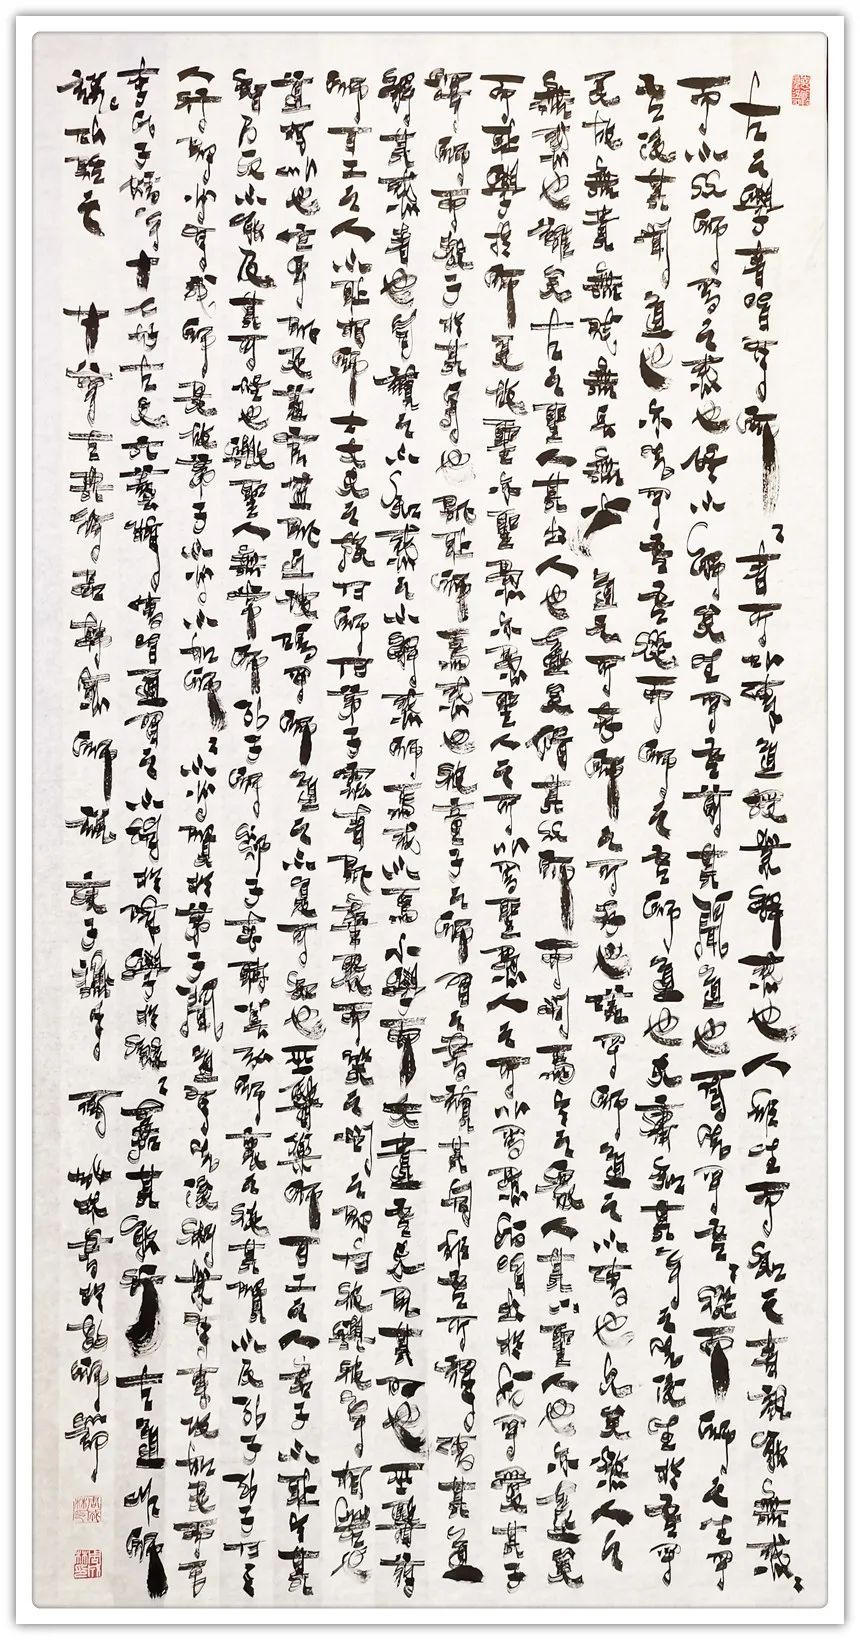 古之學者必有師=者所以傳道授業解惑也人非生而知之者孰能無惑=
而不從師其為惑也終不解矣生乎吾前其聞道也固先乎吾=從而師之生乎
吾後其聞道也亦先乎吾吾從而師之吾師道也夫庸知其年之先後生於吾乎
是故無貴無賤無長無少道之所存師之所存也嗟乎師道之不傳也久矣欲人之
無惑也難矣古之聖人其出人也遠矣猶且從師而問焉今之眾人其下聖人也亦遠矣
而恥學於師是故聖益聖愚益愚聖人之所以為聖愚人之所以為愚皆出於此乎愛其子
擇師而教之於其身也則恥師焉惑矣彼童子之師授之書習其句讀者非吾所謂傳其道
解其惑者也句讀之不知惑之不解或師焉或不焉小學而大遺吾未見其明也巫醫樂
師百工之人不恥相師士大夫之族曰師曰弟子云者則群聚而笑之問之則曰彼與彼年相若也
道相似也位卑則足羞官盛則近諛嗚呼師道之不復可知矣巫醫樂師百工之人君子不齒今其
智乃反不能及其可怪也歟聖人無常師孔子師郯子萇弘師襄老聃郯子之徒其賢不及孔子孔子曰三
人行則必有我師是故弟子不必不如師=不必賢於弟子聞道有先後術業有專攻如是而已
李氏子蟠年十七好古文六藝經傳皆通習之不拘於時學於余=嘉其能行古道作師
說以貽之 韓愈師說